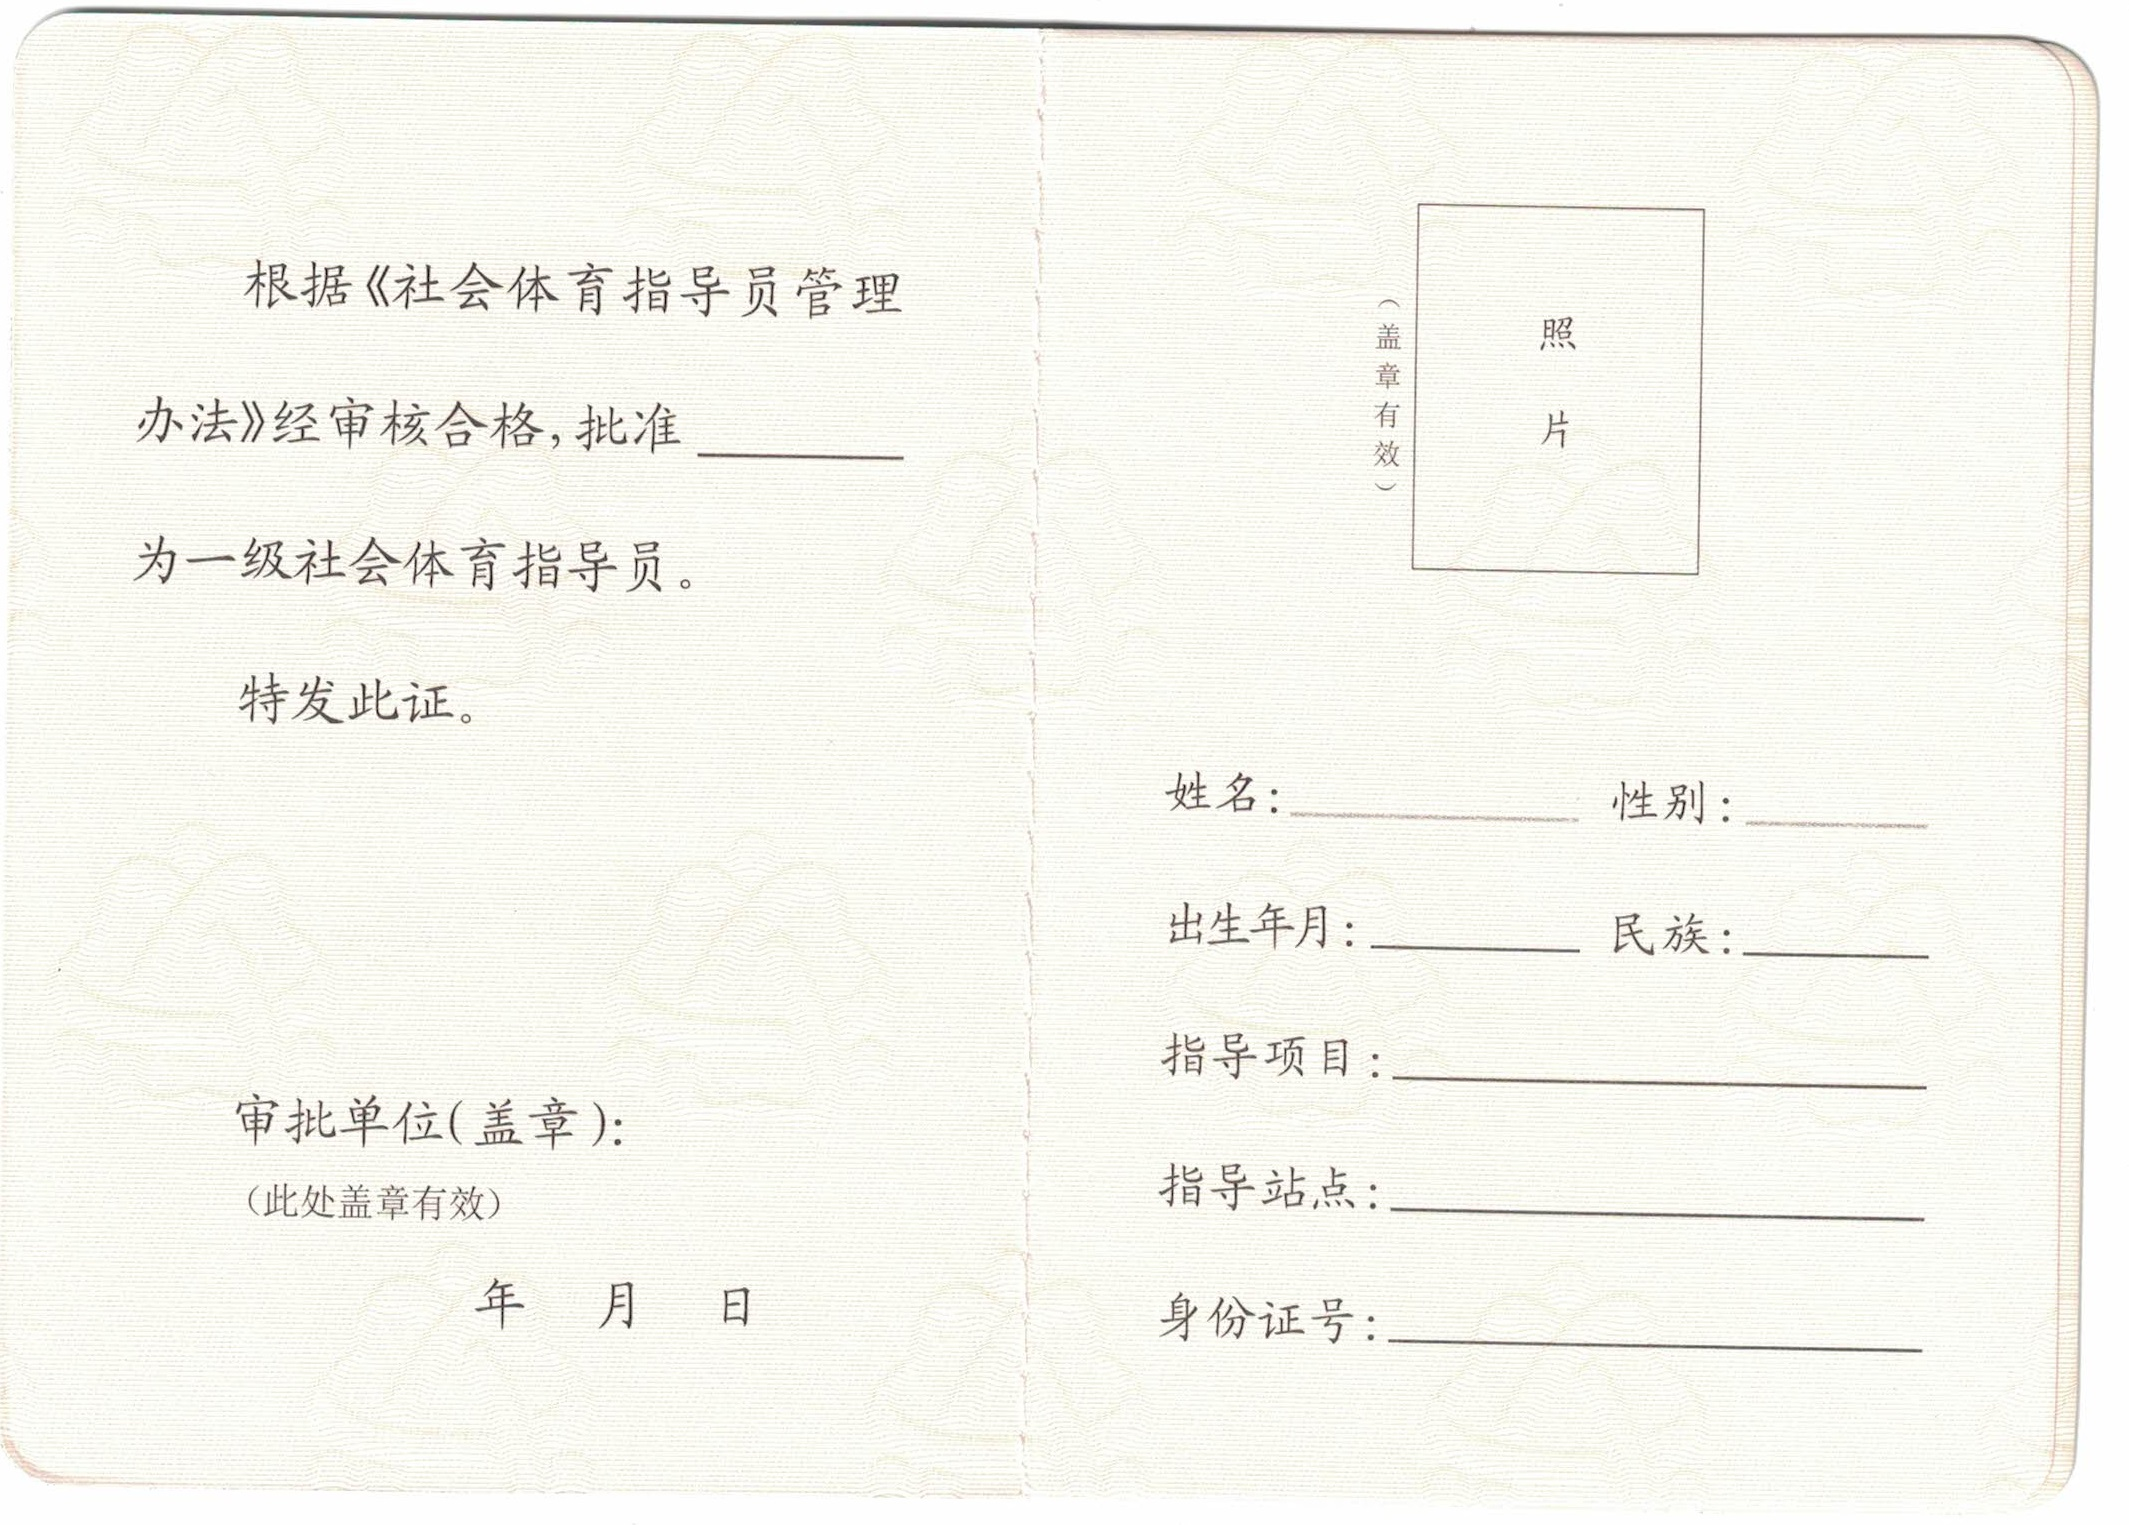 根据《社会体育指导员管理
办法》经审核合格,批准
为一级社会体育指导员。
特发此证。
审批单位(盖章):
(此处盖章有效)
年 月 日
(盖章有效)
照
片
姓名: 性别:
出生年月: 民族:
指导项目:
指导站点:
身份证号: